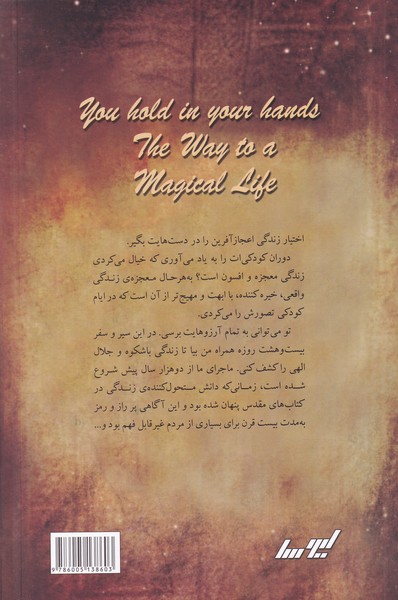 You hold in your hands
The Way to a
Magical Life
اختیار زندگی اعجازآفرین را در دست‌هایت بگیر.
دوران کودکی‌ات را به یاد می‌آوری که خیال می‌کردی
زندگی معجزه و افسون است؟ به‌هرحال معجزه‌ی زندگی
واقعی، خیره کننده، با ابهت و مهیج‌تر از آن است که در ایام
کودکی تصورش را می‌کردی.
تو می‌توانی به تمام آرزوهایت برسی. در این سیر و سفر
بیست‌وهشت روزه همراه من بیا تا زندگی باشکوه و جلال
الهی را کشف کنی. ماجرای ما از دوهزار سال پیش شروع
شده است، زمانی‌که دانش متحول‌کننده‌ی زندگی در
کتاب‌های مقدس پنهان شده بود و این آگاهی پر راز و رمز
به‌مدت بیست قرن برای بسیاری از مردم غیرقابل فهم بود و...
9 786005 138603